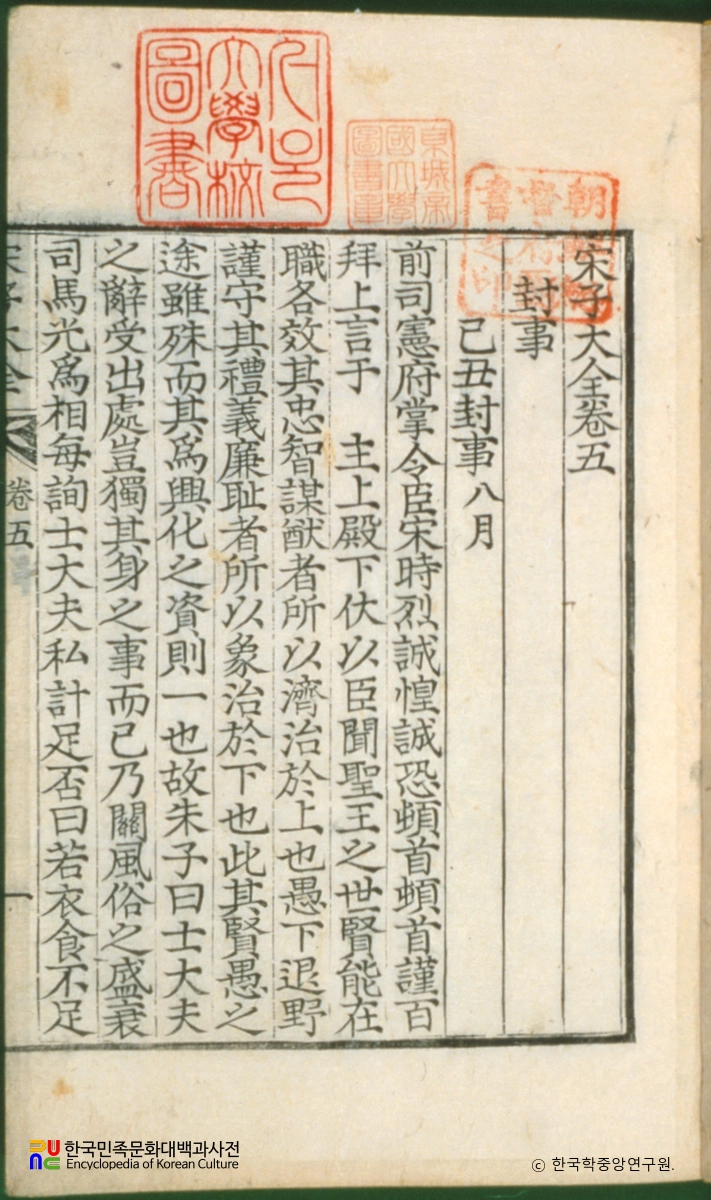 서울
大學校
圖書
京城帝
國大學
圖書章
朝鮮總
督府圖
書之印
宋子大全卷五
封事
己丑封事 八月
前司憲府掌令臣宋時烈誠惶誠恐頓首頓首謹百
拜上言于 主上殿下伏以臣聞聖王之世賢能在
職各效其忠智謀猷者所以濟治於上也愚下退野
謹守其禮義廉耻者所以象治於下也此其賢愚之
途雖殊而其爲興化之資則一也故朱子曰士大夫
之辭受出處豈獨其身之事而已乃關風俗之盛衰
司馬光爲相每詢士大夫私計足否曰若衣食不足
宋子大全 卷五 一
한국민족문화대백과사전
Encyclopedia of Korean Culture
© 한국학중앙연구원.